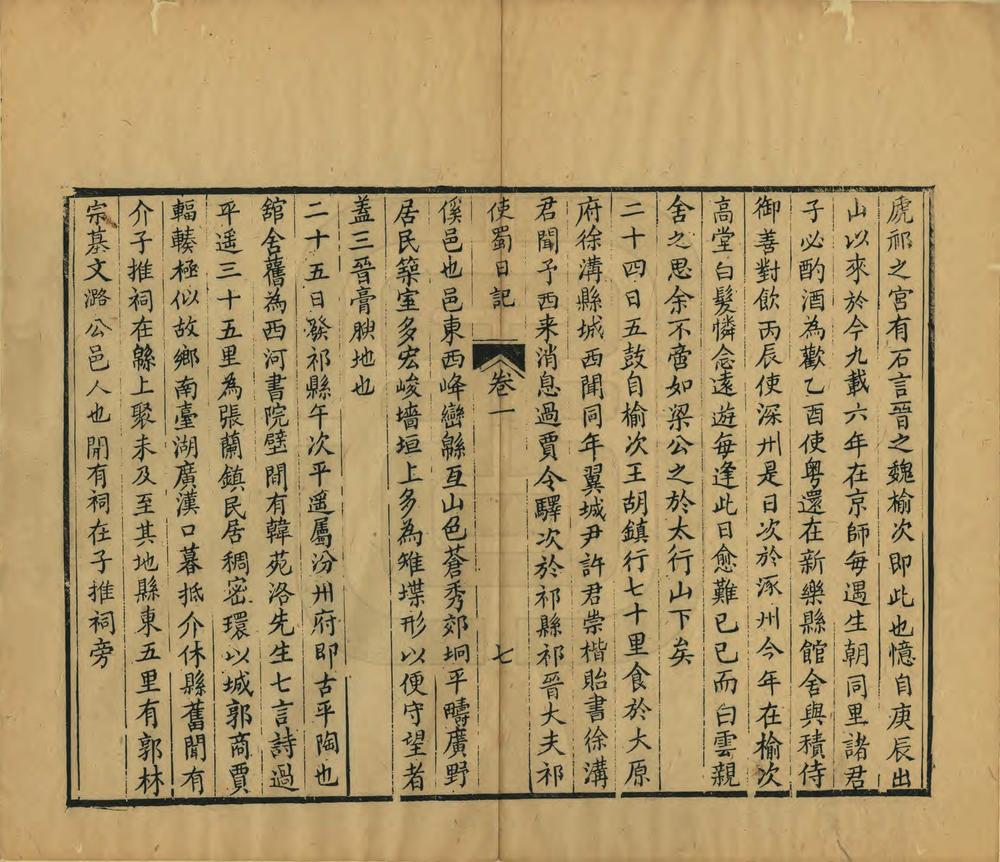 虒祁之宮有石言晉之魏榆次即此也憶自庚辰出
山以來於今九載六年在京師每遇生朝同里諸君
子必酌酒為歡乙酉使粵還在新樂縣館舍與積侍
御善對飲丙辰使深州是日次於涿州今年在榆次
高堂白髮憐念遠遊每逢此日愈難已已而白雲親
舍之思余不啻如梁公之於太行山下矣
二十四日五鼓自榆次王胡鎮行七十里食於大原
府徐溝縣城西聞同年翼城尹許君崇楷貽書徐溝
君聞予西来消息過賈令驛次於祁縣祁晉大夫祁
使蜀日記 卷一 七
傒邑也邑東西峰巒緜亙山色蒼秀郊坰平疇廣野
居民築室多宏峻墻垣上多為雉堞形以便守望者
葢三晉膏腴地也
二十五日發祁縣午次平遥屬汾州府即古平陶也
舘舍舊為西河書院壁間有韓苑洛先生七言詩過
平遥三十五里為張蘭鎮民居稠密環以城郭商賈
輻輳極似故鄉南臺湖廣漢口暮抵介休縣舊聞有
介子推祠在緜上聚未及至其地縣東五里有郭林
宗墓文潞公邑人也聞有祠在子推祠旁